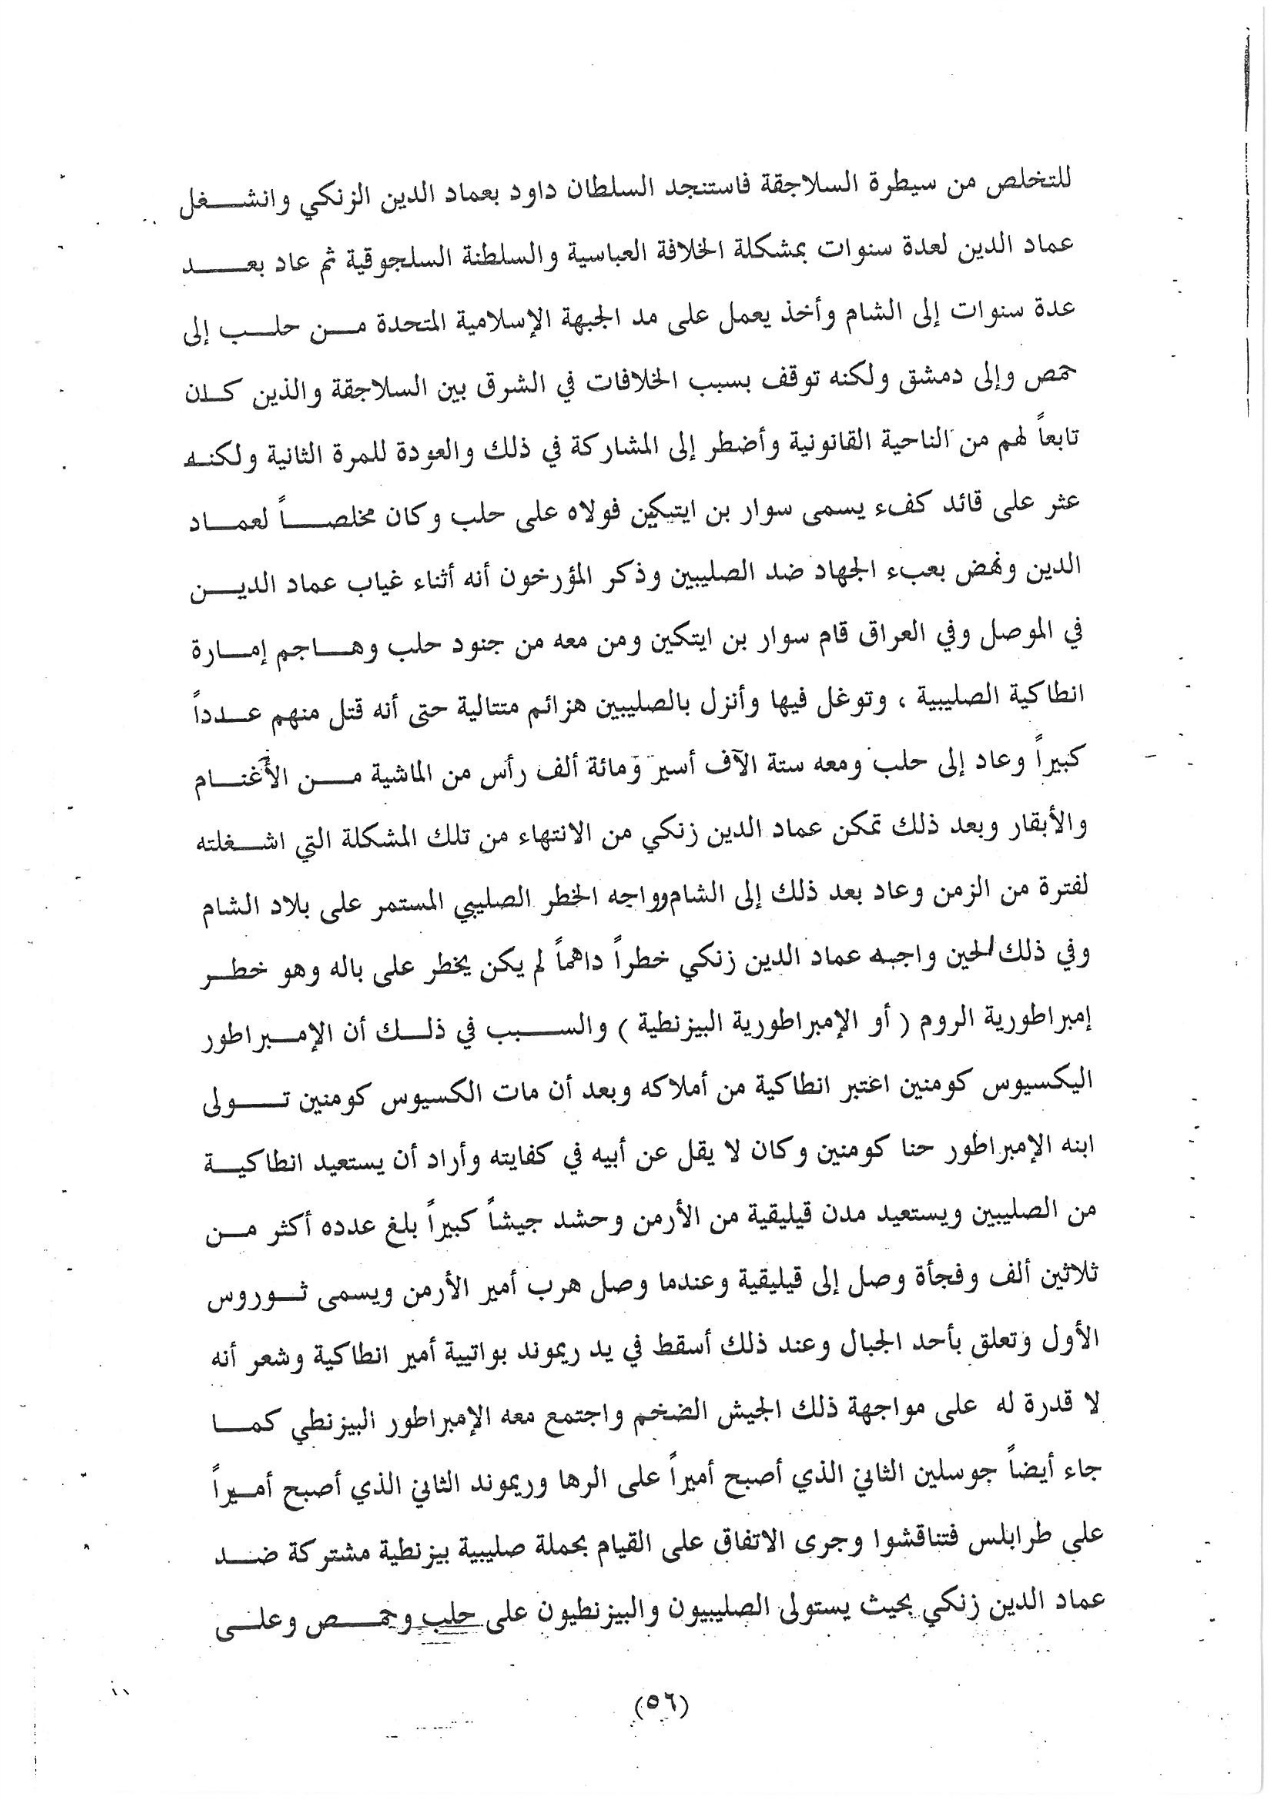 للتخلص من سيطرة السلاجقة فاستنجد السلطان داود بعماد الدين الزنكي وانشغل
عماد الدين لعدة سنوات بمشكلة الخلافة العباسية والسلطنة السلجوقية ثم عاد بعد
عدة سنوات إلى الشام وأخذ يعمل على مد الجبهة الإسلامية المتحدة من حلب إلى
حمص وإلى دمشق ولكنه توقف بسبب الخلافات في الشرق بين السلاجقة والذين كان
تابعاً لهم من الناحية القانونية وأضطر إلى المشاركة في ذلك والعودة للمرة الثانية ولكنه
عثر على قائد كفء يسمى سوار بن ايتبكين فولاه على حلب وكان مخلصاً لعماد
الدين ونهض بعبء الجهاد ضد الصليبين وذكر المؤرخون أنه أثناء غياب عماد الدين
في الموصل وفي العراق قام سوار بن ايتكين ومن معه من جنود حلب وهاجم إمارة
انطاكية الصليبية ، وتوغل فيها وأنزل بالصليبين هزائم متتالية حتى أنه قتل منهم عدداً
كبيراً وعاد إلى حلب ومعه ستة الآف أسير ومائة ألف رأس من الماشية من الأغنام
والأبقار وبعد ذلك تمكن عماد الدين زنكي من الانتهاء من تلك المشكلة التي اشغلته
لفترة من الزمن وعاد بعد ذلك إلى الشام وواجه الخطر الصليبي المستمر على بلاد الشام
وفي ذلك الحين واجبه عماد الدين زنكي خطراً داهماً لم يكن يخطر على باله وهو خطر
إمبراطورية الروم ( أو الإمبراطورية البيزنطية ) والسبب في ذلك أن الإمبراطور
اليكسيوس كومنين اعتبر انطاكية من أملاكه وبعد أن مات الكسيوس كومنين تولى
ابنه الإمبراطور حنا كومنين وكان لا يقل عن أبيه في كفايته وأراد أن يستعيد انطاكية
من الصليبين ويستعيد مدن قيليقية من الأرمن وحشد جيشاً كبيراً بلغ عدده أكثر من
ثلاثين ألف وفجأة وصل إلى قيليقية وعندما وصل هرب أمير الأرمن ويسمى ثوروس
الأول وتعلق بأحد الجبال وعند ذلك أسقط في يد ريموند بواتيية أمير انطاكية وشعر أنه
لا قدرة له على مواجهة ذلك الجيش الضخم واجتمع معه الإمبراطور البيزنطي كما
جاء أيضاً جوسلين الثاني الذي أصبح أميراً على الرها وريموند الثاني الذي أصبح أميراً
على طرابلس فتناقشوا وجرى الاتفاق على القيام بحملة صليبية بيزنطية مشتركة ضد
عماد الدين زنكي بحيث يستولى الصليبيون والبيزنطيون على حلب وحمص وعلى
(٥٦)